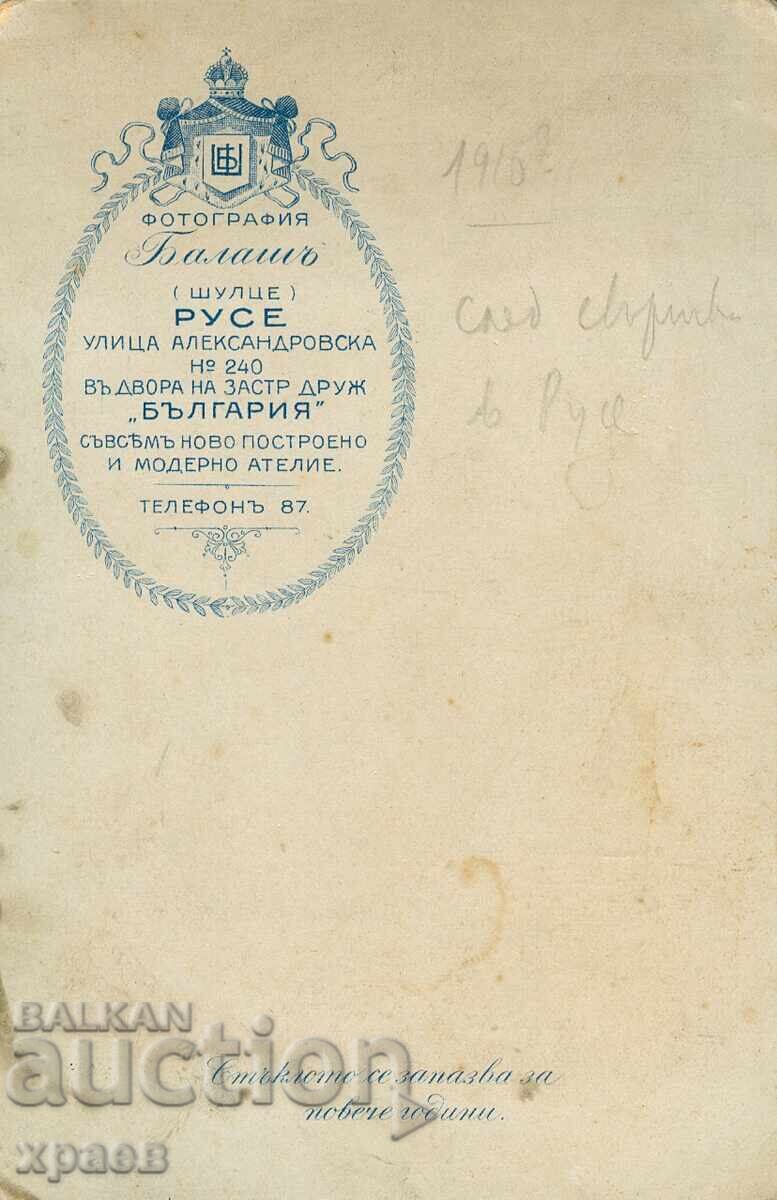 ФОТОГРАФИЯ
Балашъ
(ШУЛЦЕ)
РУСЕ
УЛИЦА АЛЕКСАНДРОВСКА
№ 240
ВЪ ДВОРА НА ЗАСТР ДРУЖ
„БЪЛГАРИЯ"
СЪВСѢМЪ НОВО ПОСТРОЕНО
И МОДЕРНО АТЕЛИЕ.
ТЕЛЕФОНЪ 87.
след
в Русе
BALKAN
auction
Стъклото се запазва за
повече години.
храев